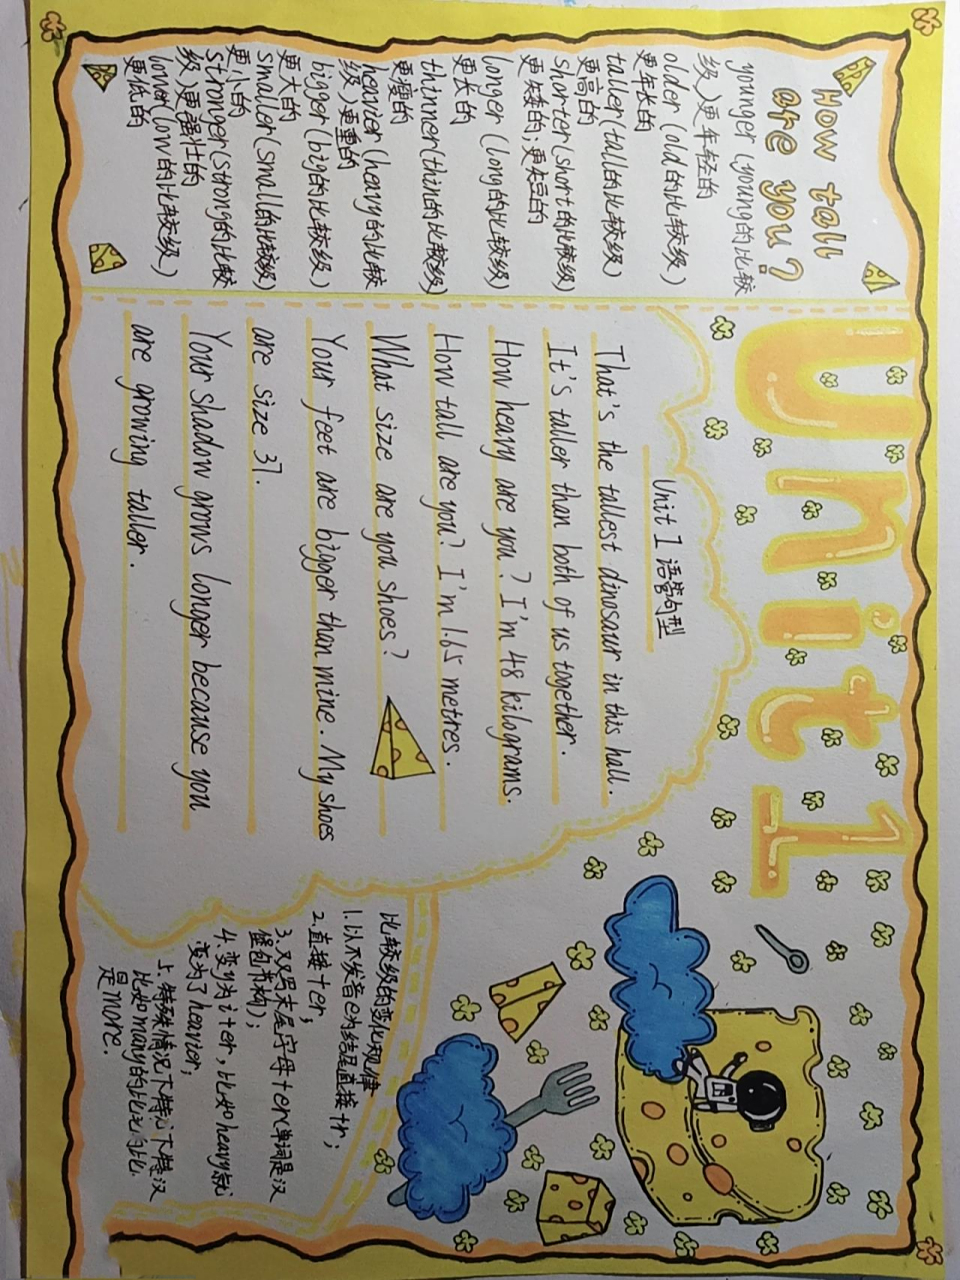 How tall
are you?
younger (young的比较
级)更年轻的
older (old的比较级)
更年长的
taller (tall的比较级)
更高的
shorter (short的比较级)
更矮的;更短的
longer (long的比较级)
更长的
thinner (thin的比较级)
更瘦的
heavier (heavy的比较
级)更重的
bigger (big的比较级)
更大的
smaller (small的比较级)
更小的
stronger (strong的比较
级)更强壮的
lower (low的比较级)
更低的
Unit 1
Unit 1 语篇句型
That's the tallest dinosaur in this hall.
It's taller than both of us together.
How heavy are you? I'm 48 kilograms.
How tall are you? I'm 1.65 metres.
What size are you shoes?
Your feet are bigger than mine. My shoes
are size 37.
Your shadow grows longer because you
are growing taller.
比较级的变化规律
1.以不发音e为结尾直接+r;
2.直接+er;
3.双写末尾字母+er(单词是汉
堡包结构);
4.变y为i+er,比如heavy就
变为了heavier;
5.特殊情况下特
比如many的比
是more.